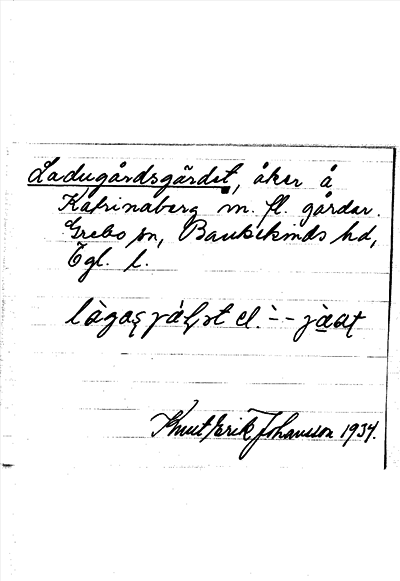 Ladugårdsgärdet, åker å
Katrinaberg m. fl. gårdar.
Grebo sn, Bankekinds hd,
Ögl. l.
el.
Knut Erik Johansson 1934.